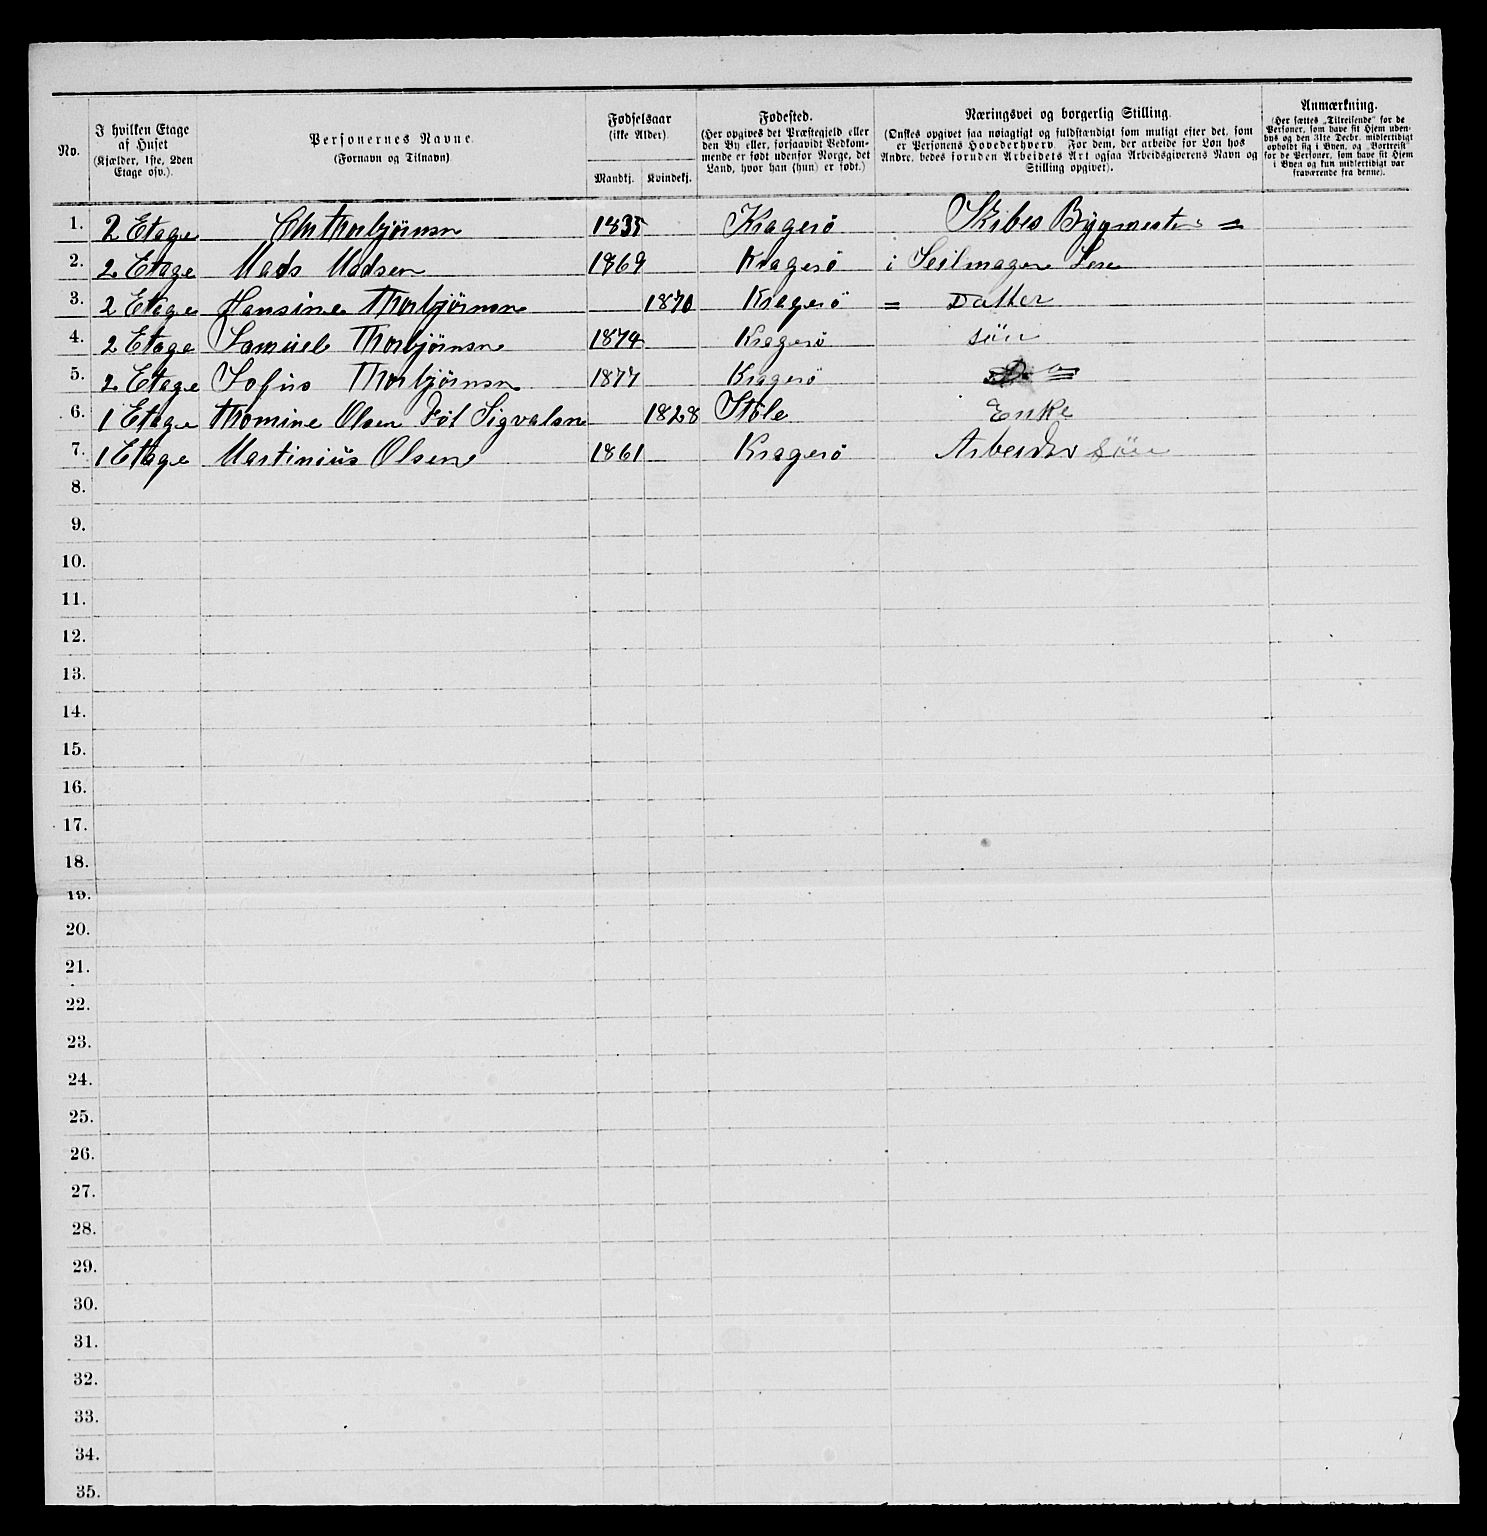 No.
I hvilken Etage af Huset (Kjælder, 1ste, 2den Etage osv.).
Personernes Navne. (Fornavn og Tilnavn)
Fødselsaar (ikke Alder).
Mandkj. Kvindekj.
Fødested. (Her opgives det Præstegjeld eller den By eller, forsaavidt Vedkommende er født udenfor Norge, det Land, hvor han (hun) er født.)
Næringsvei og borgerlig Stilling. (Ønskes opgivet saa nøiagtigt og fuldstændigt som muligt efter det, som er Personens Hovederhverv. For dem, der arbeide for Løn hos Andre, bedes foruden Arbeidets Art ogsaa Arbeidsgiverens Navn og Stilling opgivet).
Anmærkning. (Her sættes „Tilreisende“ for de Personer, som have sit Hjem udenbys og den 31te Decbr. midlertidigt opholdt sig i Byen, og „Bortreist“ for de Personer, som have sit Hjem i Byen og kun midlertidigt var fraværende fra denne).
1. 2 Etage Chr Thorbjörnsn 1835 Kragerö Skibs Bygmester =
2. 2 Etage Mads Madsen 1869 Kragerö i Seilmager Lere
3. 2 Etage Hansine Thorbjörnsn 1870 Kragerö = Datter
4. 2 Etage Samuel Thorbjörnsn 1874 Kragerö sön
5. 2 Etage Sofus Thorbjörnsn 1877 Kragerö
6. 1 Etage Thomine Olsen Föt Sigvalsn 1828 Stöle Enke
7. 1 Etage Martinius Olsen 1861 Kragerö Arbeider sön
8.
9.
10.
11.
12.
13.
14.
15.
16.
17.
18.
19.
20.
21.
22.
23.
24.
25.
26.
27.
28.
29.
30.
31.
32.
33.
34.
35.